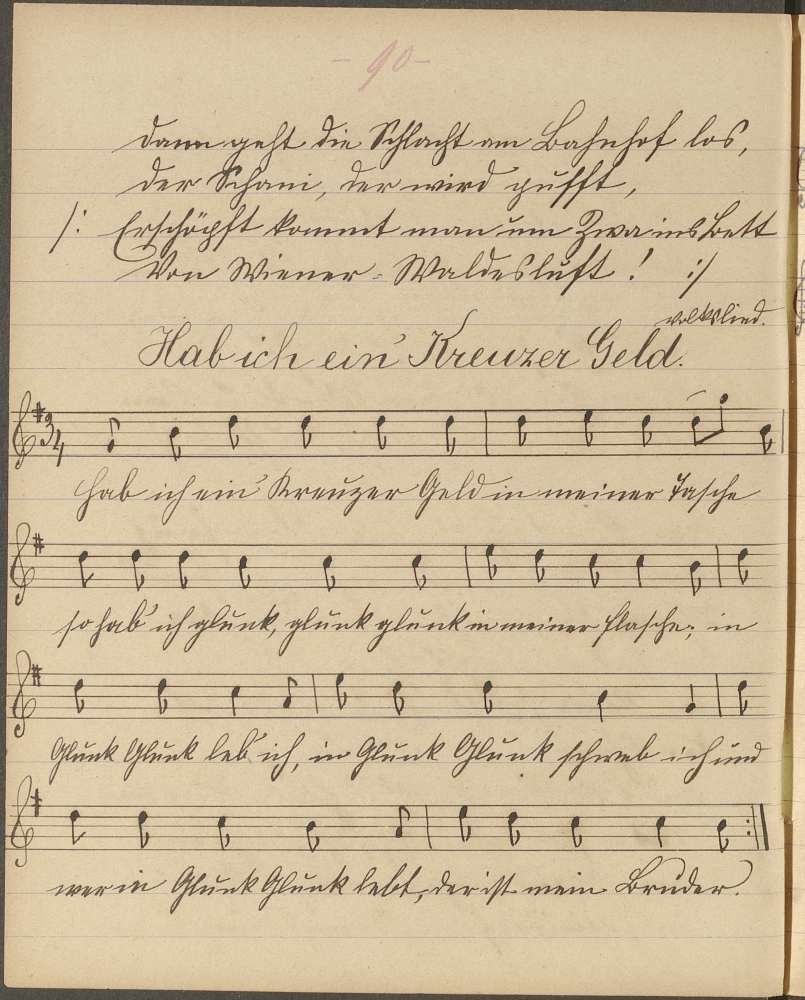 - 90 -
dann geht die Schlacht am Bahnhof los,
der Schani, der wird pufft,
/: Erschöpft kommt man um Zwa ins Bett
Von Wiener-Waldesluft! :/
Volkslied.
Hab ich ein' Kreuzer Geld.
3/4
Hab ich ein' Kreuzer Geld in meiner Tasche
so hab' ich glunk, glunk glunk in meiner Flasche; in
Glunk Glunk leb' ich, in Glunk Glunk schweb ich und
wer in Glunk Glunk lebt, der ist mein Bruder.